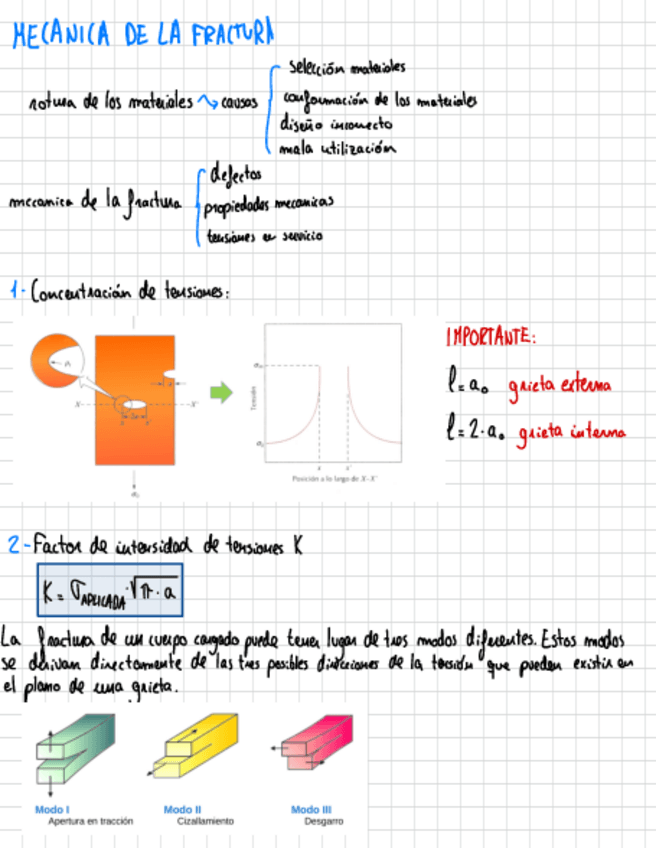 MECANICA DE LA FRACTURA
selección materiales
rotura de los materiales causas conformación de los materiales
diseño incorrecto
mala utilización
defectos
mecanica de la fractura propiedades mecanicas
tensiones en servicio
1- Concentración de tensiones:
IMPORTANTE:
l = a₀ grieta externa
l = 2·a₀ grieta interna
Tensión
X X'
x x'
Posición a lo largo de X-X'
σ₀
2- Factor de intensidad de tensiones K
K = σAPLICADA · √π · a
La fractura de un cuerpo cargado puede tener lugar de tres modos diferentes. Estos modos
se derivan directamente de las tres posibles direcciones de la tensión que pueden existir en
el plano de una grieta.
Modo I Modo II Modo III
Apertura en tracción Cizallamiento Desgarro